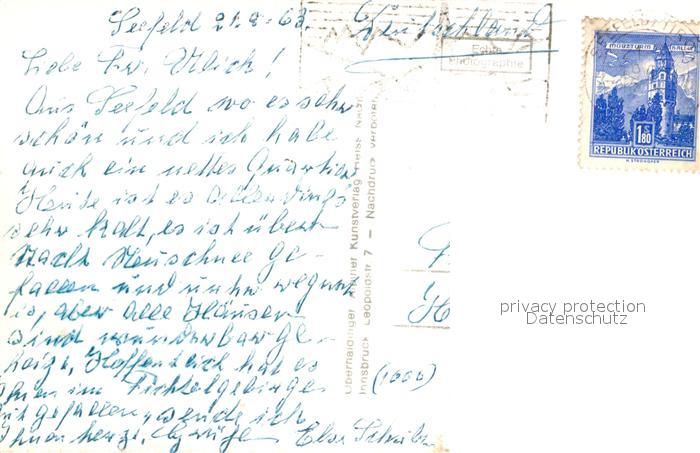 Seefeld 21.9.63
Liebe Frl. Ulich!
Aus Seefeld wo es sehr
schön und ich habe
auch ein nettes Quartier
Heute ist es allerdings
sehr kalt, es ist über
Nacht Neuschnee ge-
fallen und unten regnet
es, aber alle Häuser
sind wunderbar ge-
heizt. Hoffentlich hat es
Ihnen im Fichtelgebirge
gut gefallen, sende ich
Ihnen herzl. Grüße
Deutschland
Echte
Photographie
Kunstverlag
Innsbruck Leopoldstr 7 — Nachdruck verboten
MÜNZTURM HALL I.T.
1.80
REPUBLIK ÖSTERREICH
privacy protection
Datenschutz